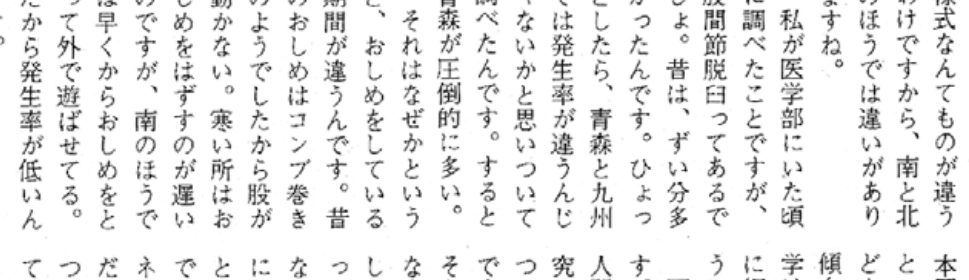 様式なんてものが違う
わけですから、南と北
のほうでは違いがあり
ますね。
私が医学部にいた頃
に調べたことですが、
股関節脱臼ってあるで
しょ。昔は、ずい分多
かったんです。ひょっ
としたら、青森と九州
では発生率が違うんじ
ゃないかと思いついて
調べたんです。すると
青森が圧倒的に多い。
それはなぜかという
と、おしめをしている
期間が違うんです。昔
のおしめはコンブ巻き
のようでしたから股が
動かない。寒い所はお
しめをはずすのが遅い
のですが、南のほうで
は早くからおしめをと
って外で遊ばせてる。
だから発生率が低いん
。
本
と
ど
傾
学
に
う
す
人
究
つ
で
そ
な
し
っ
な
に
と
で
ネ
だ
つ
て